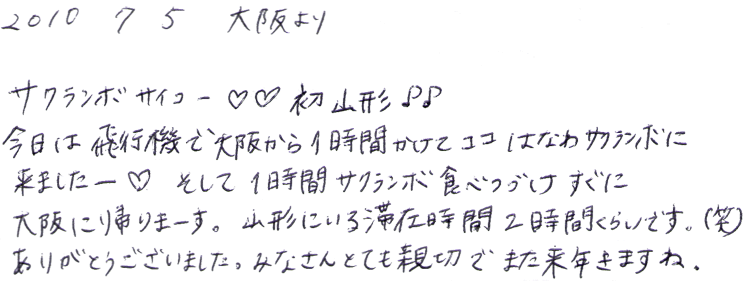 2010 7 5 大阪より
サクランボサイコー♡♡ 初山形♪♪
今日は飛行機で大阪から1時間かけてココはなわサクランボに
来ましたー♡ そして1時間サクランボ食べつづけすぐに
大阪に帰りまーす。山形にいる滞在時間2時間くらいです。(笑)
ありがとうございました。みなさんとても親切でまた来年きますね.